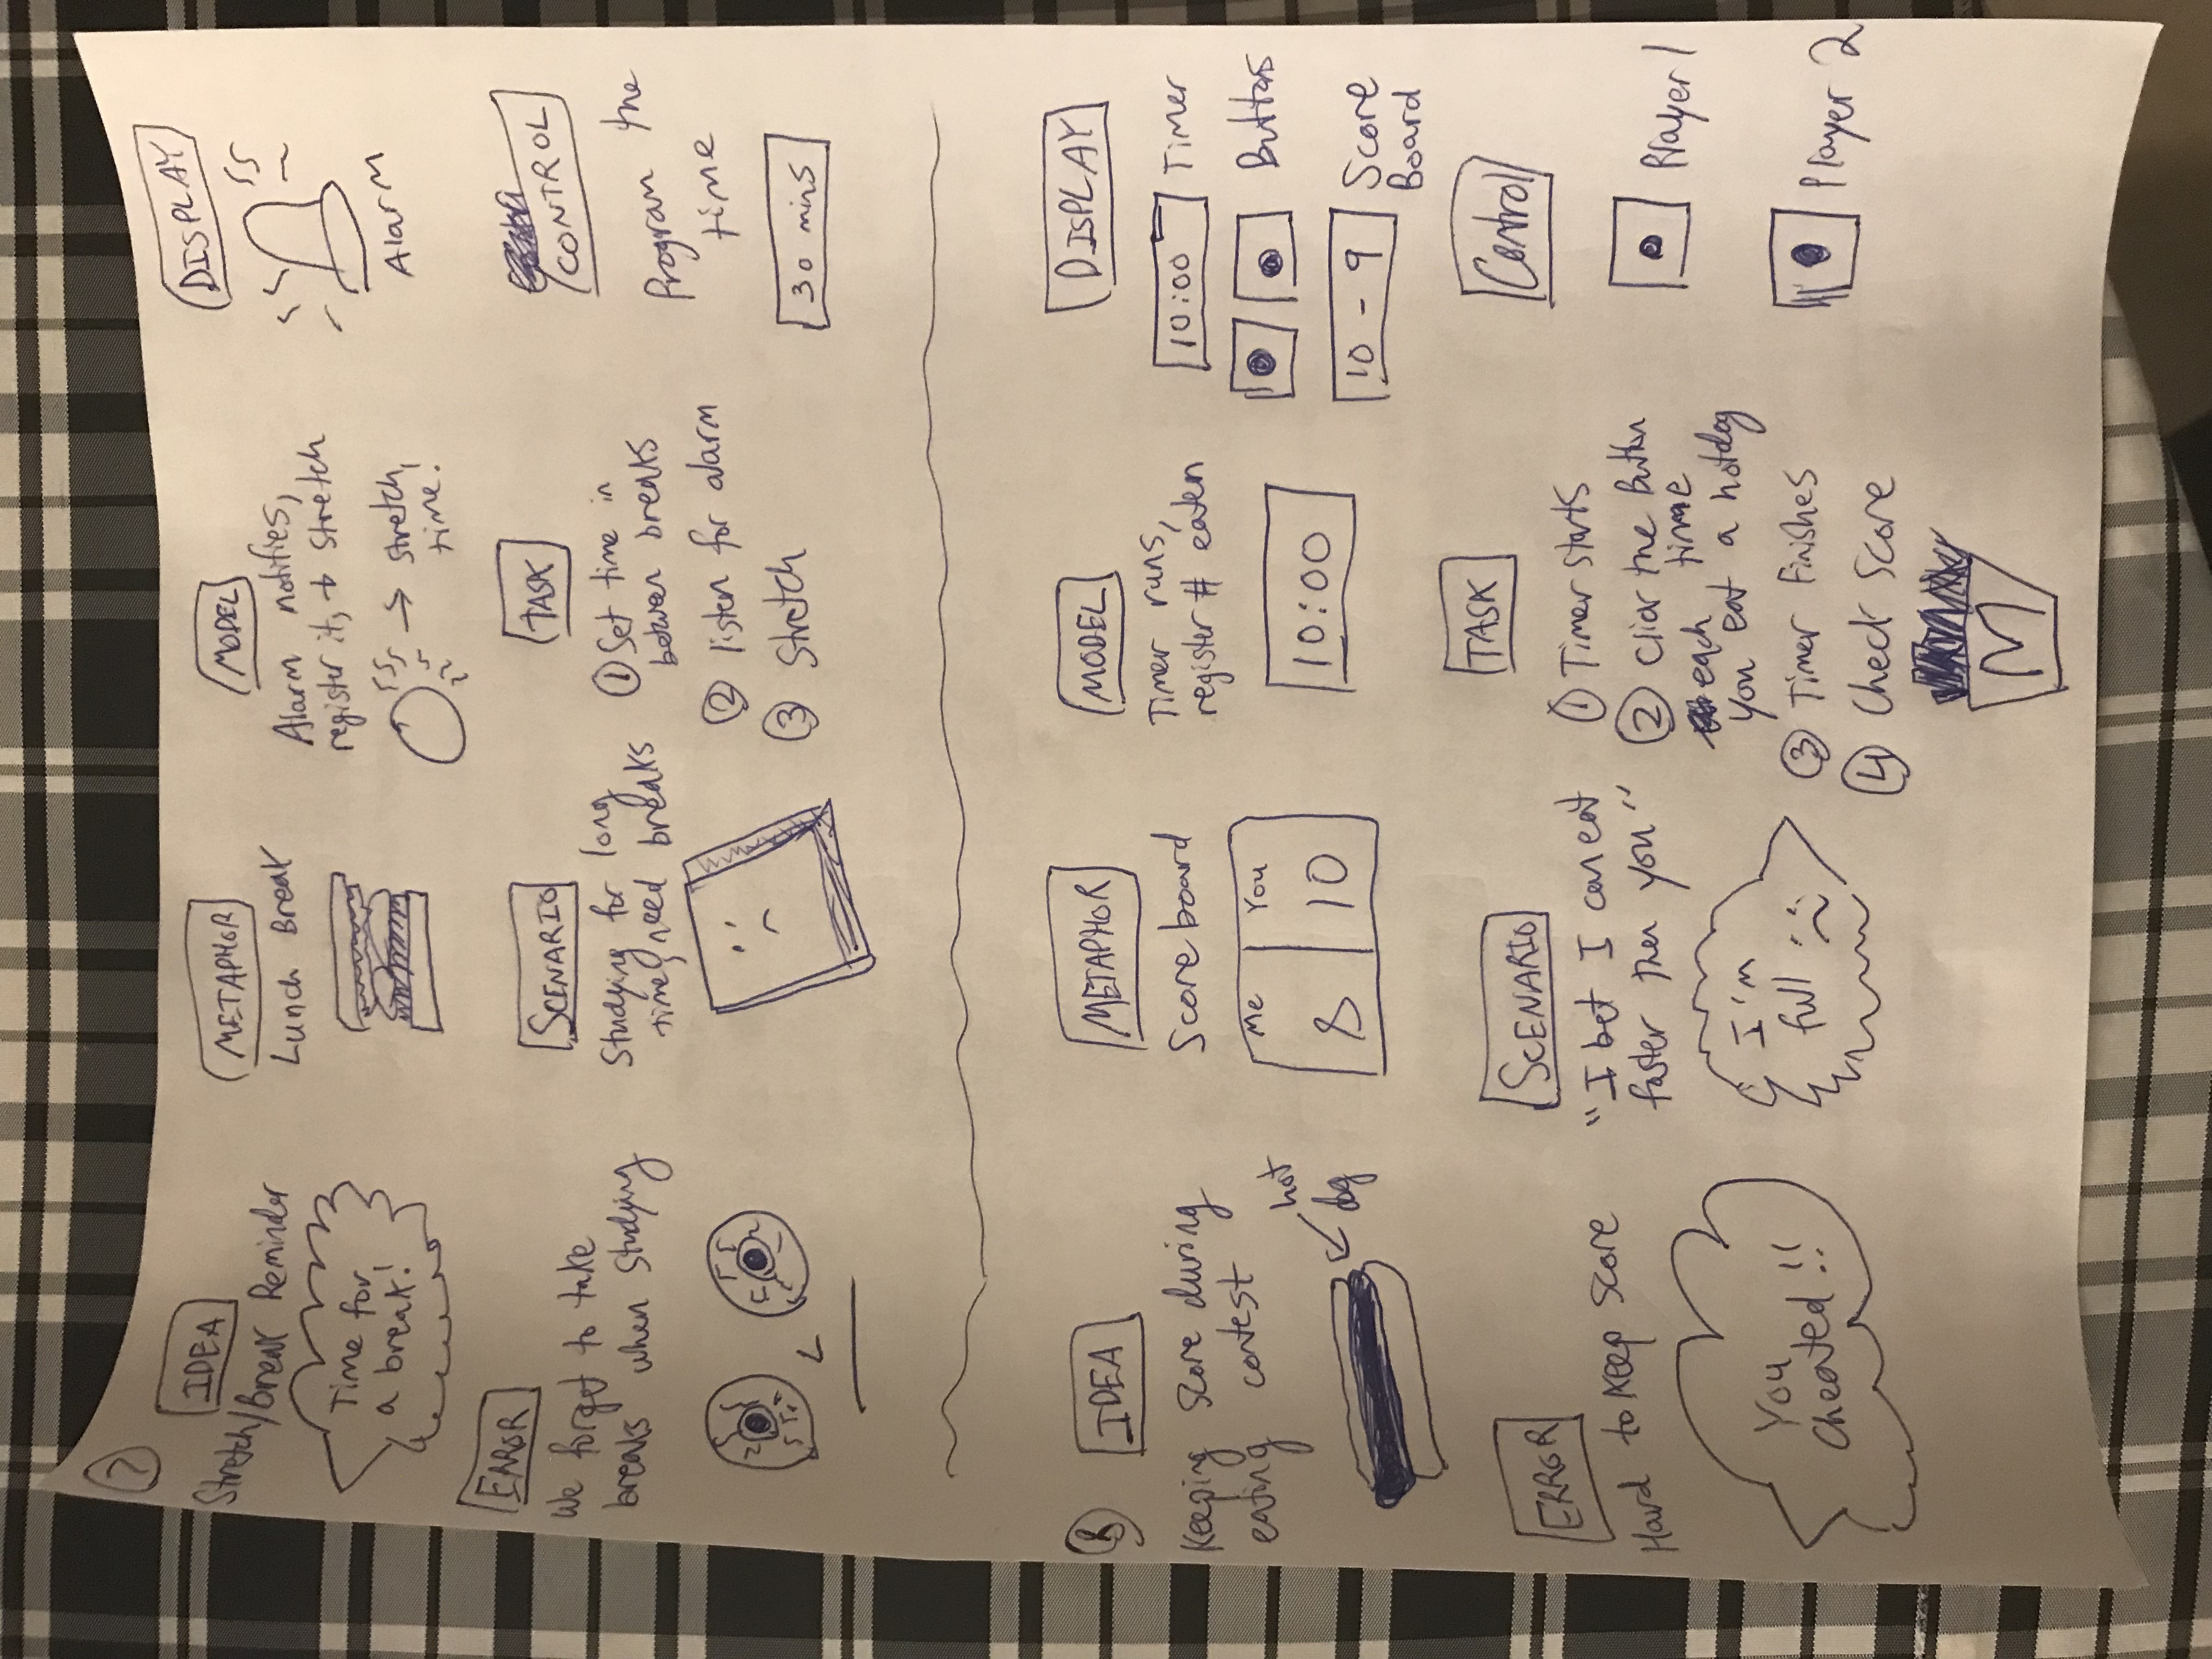 7
IDEA
Stretch/Break Reminder
Time for
a break!
METAPHOR
Lunch Break
MODEL
Alarm notifies,
register it, + stretch
→ stretch
time!
DISPLAY
Alarm
ERROR
We forget to take
breaks when studying
SCENARIO
Studying for long
time, need breaks
TASK
① Set time in
between breaks
② listen for alarm
③ Stretch
CONTROL
Program the
time
30 mins
8
IDEA
Keeping score during
eating contest
hot
dog
METAPHOR
Scoreboard
Me You
8 10
MODEL
Timer runs,
register # eaten
10:00
DISPLAY
10:00 Timer
Buttons
10 - 9 Score
Board
ERROR
Hard to keep score
You
cheated!!
SCENARIO
"I bet I can eat
faster then you"
I'm
full :(
TASK
① Timer starts
② Click the Button
each time
you eat a hotdog
③ Timer Finishes
④ Check Score
M
Control
Player 1
Player 2